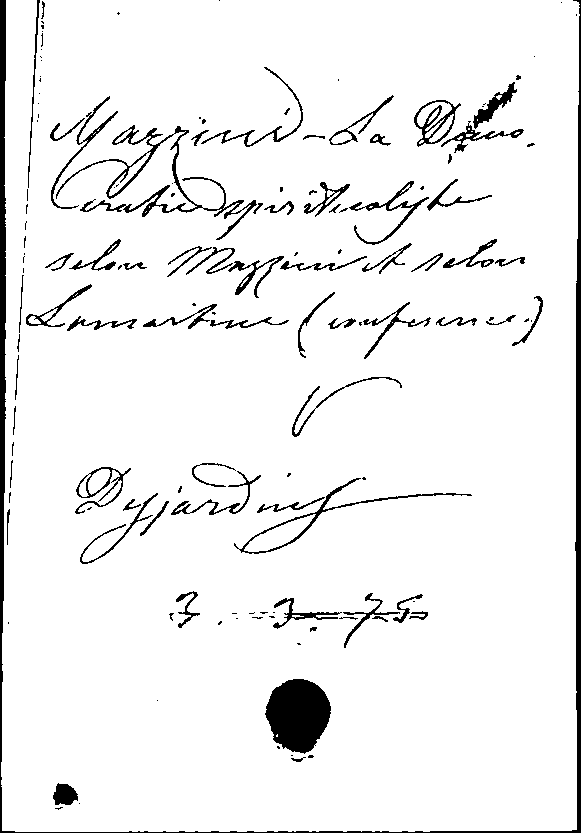 Mazzini - La Démo-
cratie spiritualiste
selon Mazzini et selon
Lamartine (conference.)
V
Desjardins
3. 3. 75